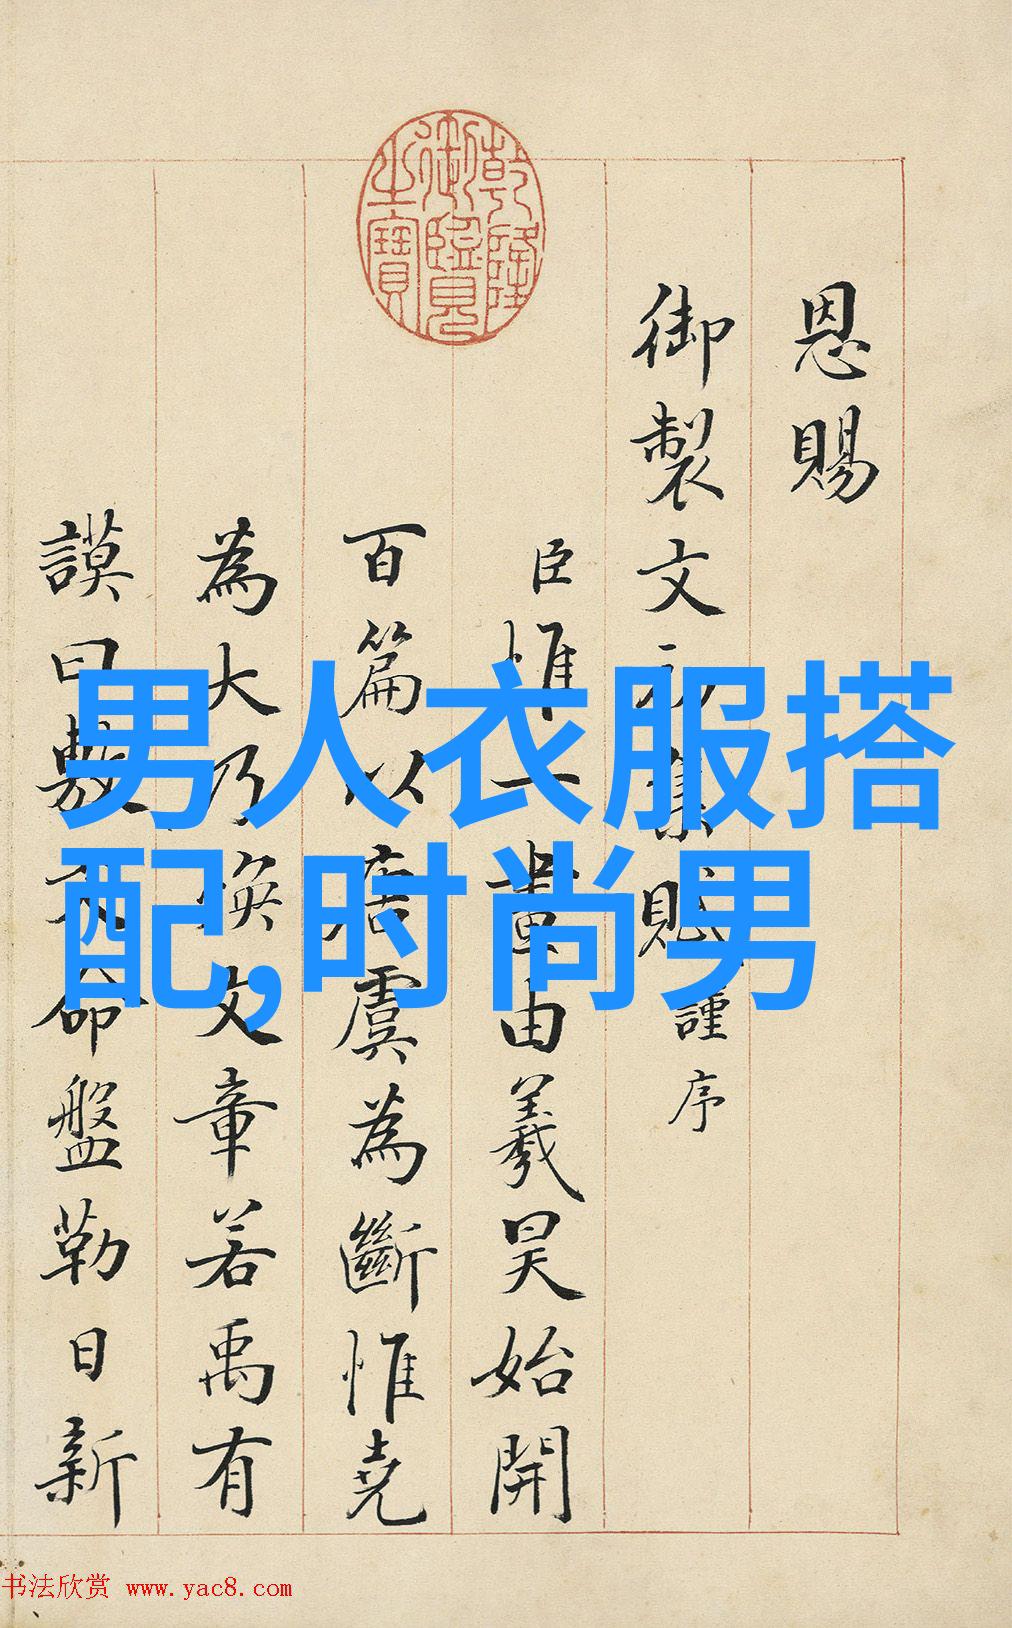 恩賜
御製文初集賦謹序
臣惟一畫由羲昊始開
百篇以唐虞為斷惟堯
為大乃煥文章若禹有
謨曰敷文命盤勒日新
乾隆
御覽
之寶
男人衣服搭
配,时尚男
书法欣赏 www.yac8.com